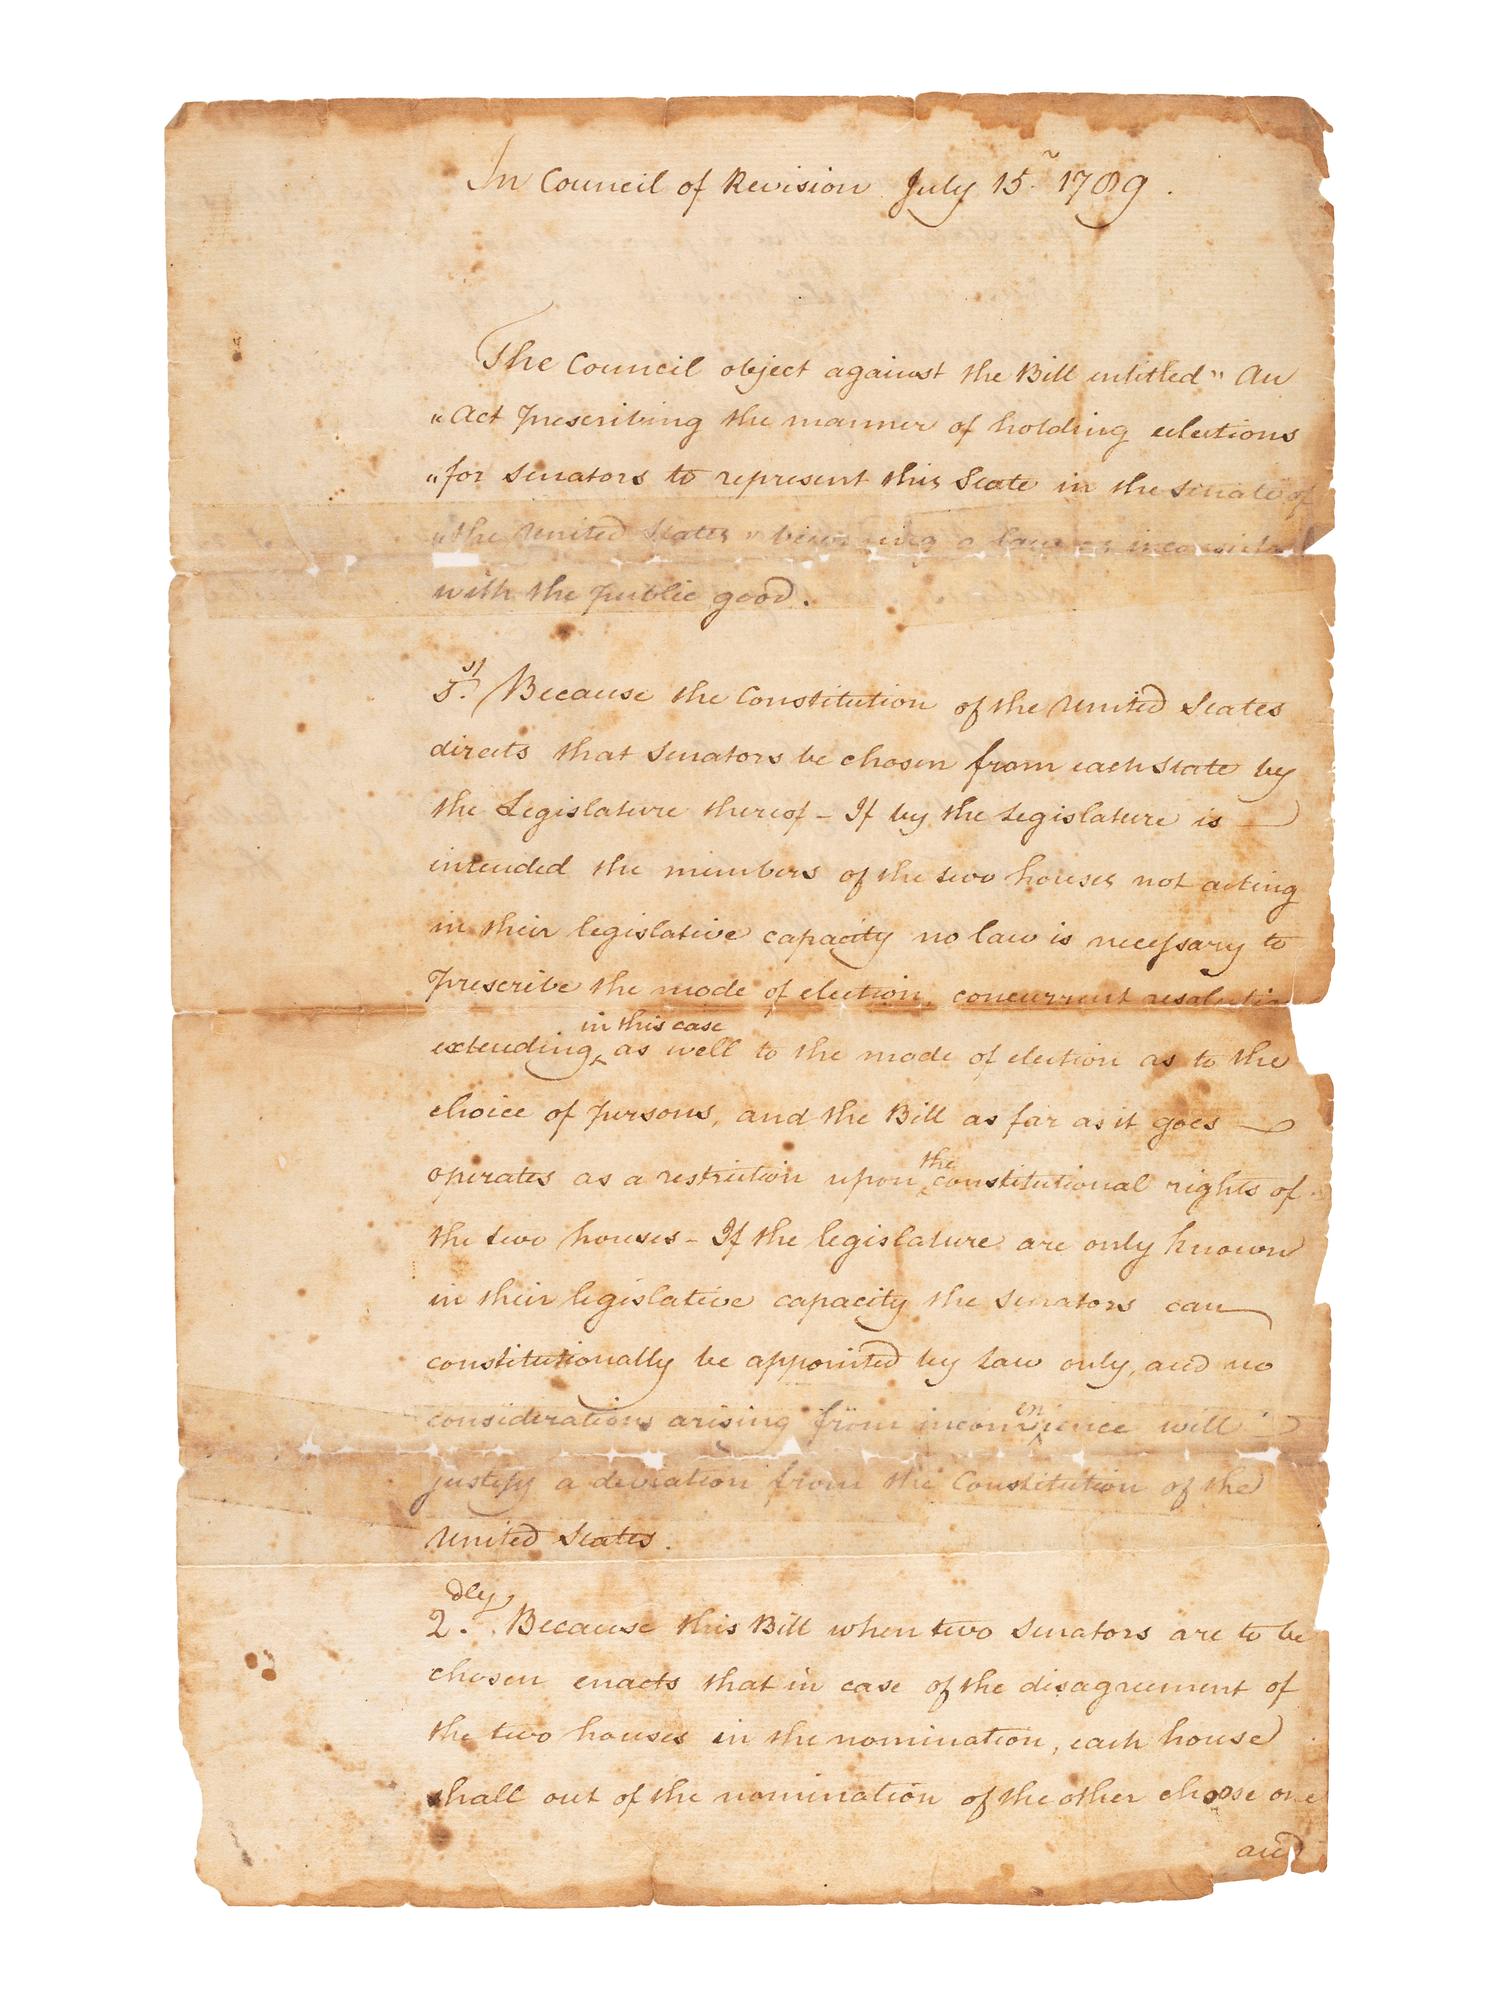 In Council of Revision July 15. 1789.
The Council object against the Bill entitled " An
"Act prescribing the manner of holding elections
"for Senators to represent this State in the Senate of
"the United States" becoming a law as inconsistent
with the public good.
1st. Because the Constitution of the United States
directs that Senators be chosen from each State by
the Legislature thereof - If by the Legislature is
intended the members of the two houses not acting
in their legislative capacity no law is necessary to
prescribe the mode of election, concurrent resolution
in this case
extending ‸ as well to the mode of election as to the
choice of persons, and the Bill as far as it goes
the
operates as a restriction upon ‸ constitutional rights of
the two houses - If the legislature are only known
in their legislative capacity the Senators can
constitutionally be appointed by Law only, and no
en
considerations arising from inconv‸ience will
justify a deviation from the Constitution of the
United States.
2dly. Because this Bill when two Senators are to be
chosen enacts that in case of the disagreement of
the two houses in the nomination, each house
shall out of the nomination of the other choose one
and